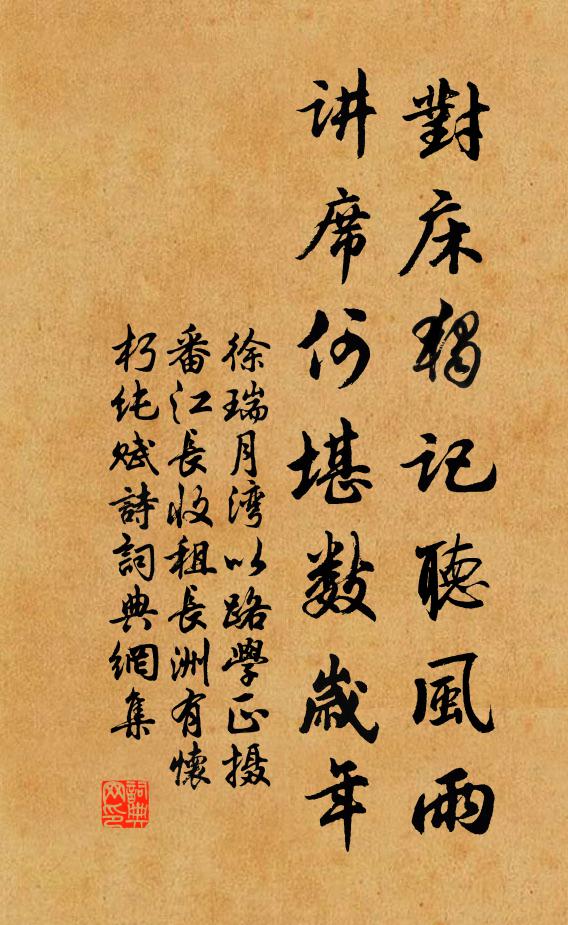 對床独记聽風雨
讲席何堪数歲年
徐瑞月湾以路學正摄
番江長收租長洲有懷
朽纯赋詩詞典網集
詞典网印